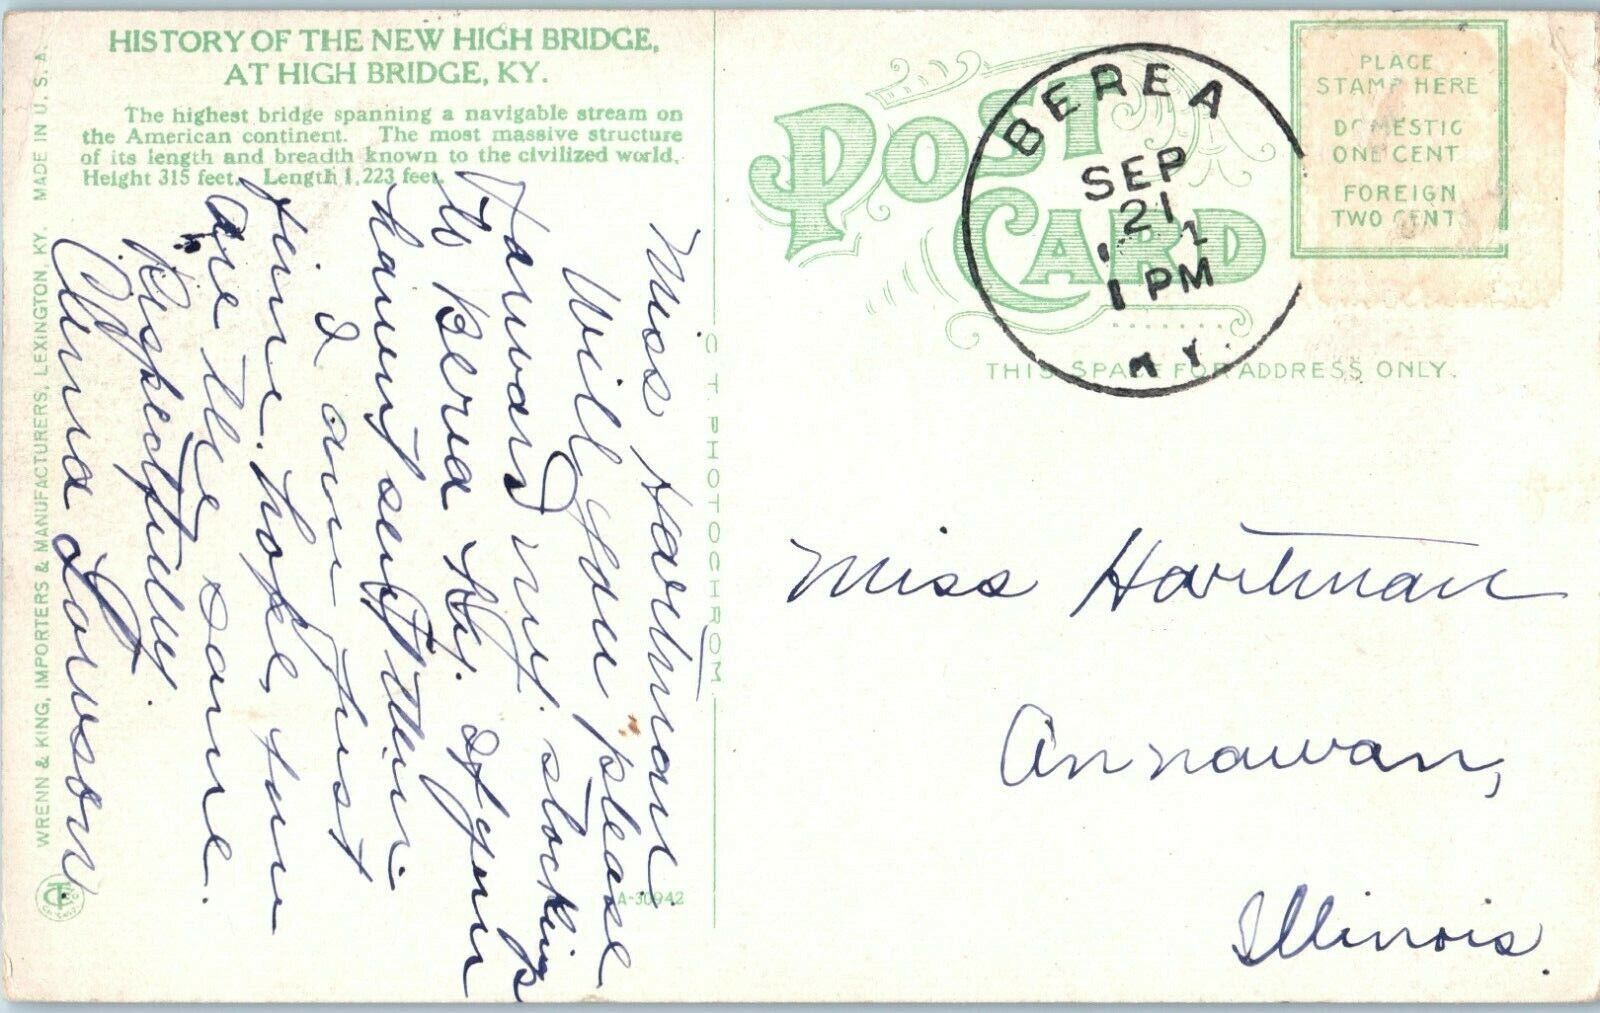 HISTORY OF THE NEW HIGH BRIDGE,
AT HIGH BRIDGE, KY.
The highest bridge spanning a navigable stream on
the American continent. The most massive structure
of its length and breadth known to the civilized world.
Height 315 feet. Length 1,223 feet.
Miss Hartman
Will you please
forward my stockings
to Berea Ky. if you
havent sent them.
I am just
fine. hope you
are the same.
Respectfully
Anna Lawson
WRENN & KING, IMPORTERS & MANUFACTURERS, LEXINGTON, KY. MADE IN U. S. A.
C. T. PHOTOCHROM
A-30942
POST CARD
THIS SPACE FOR ADDRESS ONLY.
BEREA
SEP
21
1 PM
KY.
PLACE
STAMP HERE
DOMESTIC
ONE CENT
FOREIGN
TWO CENTS
Miss Hartman
Annawan,
Illinois.